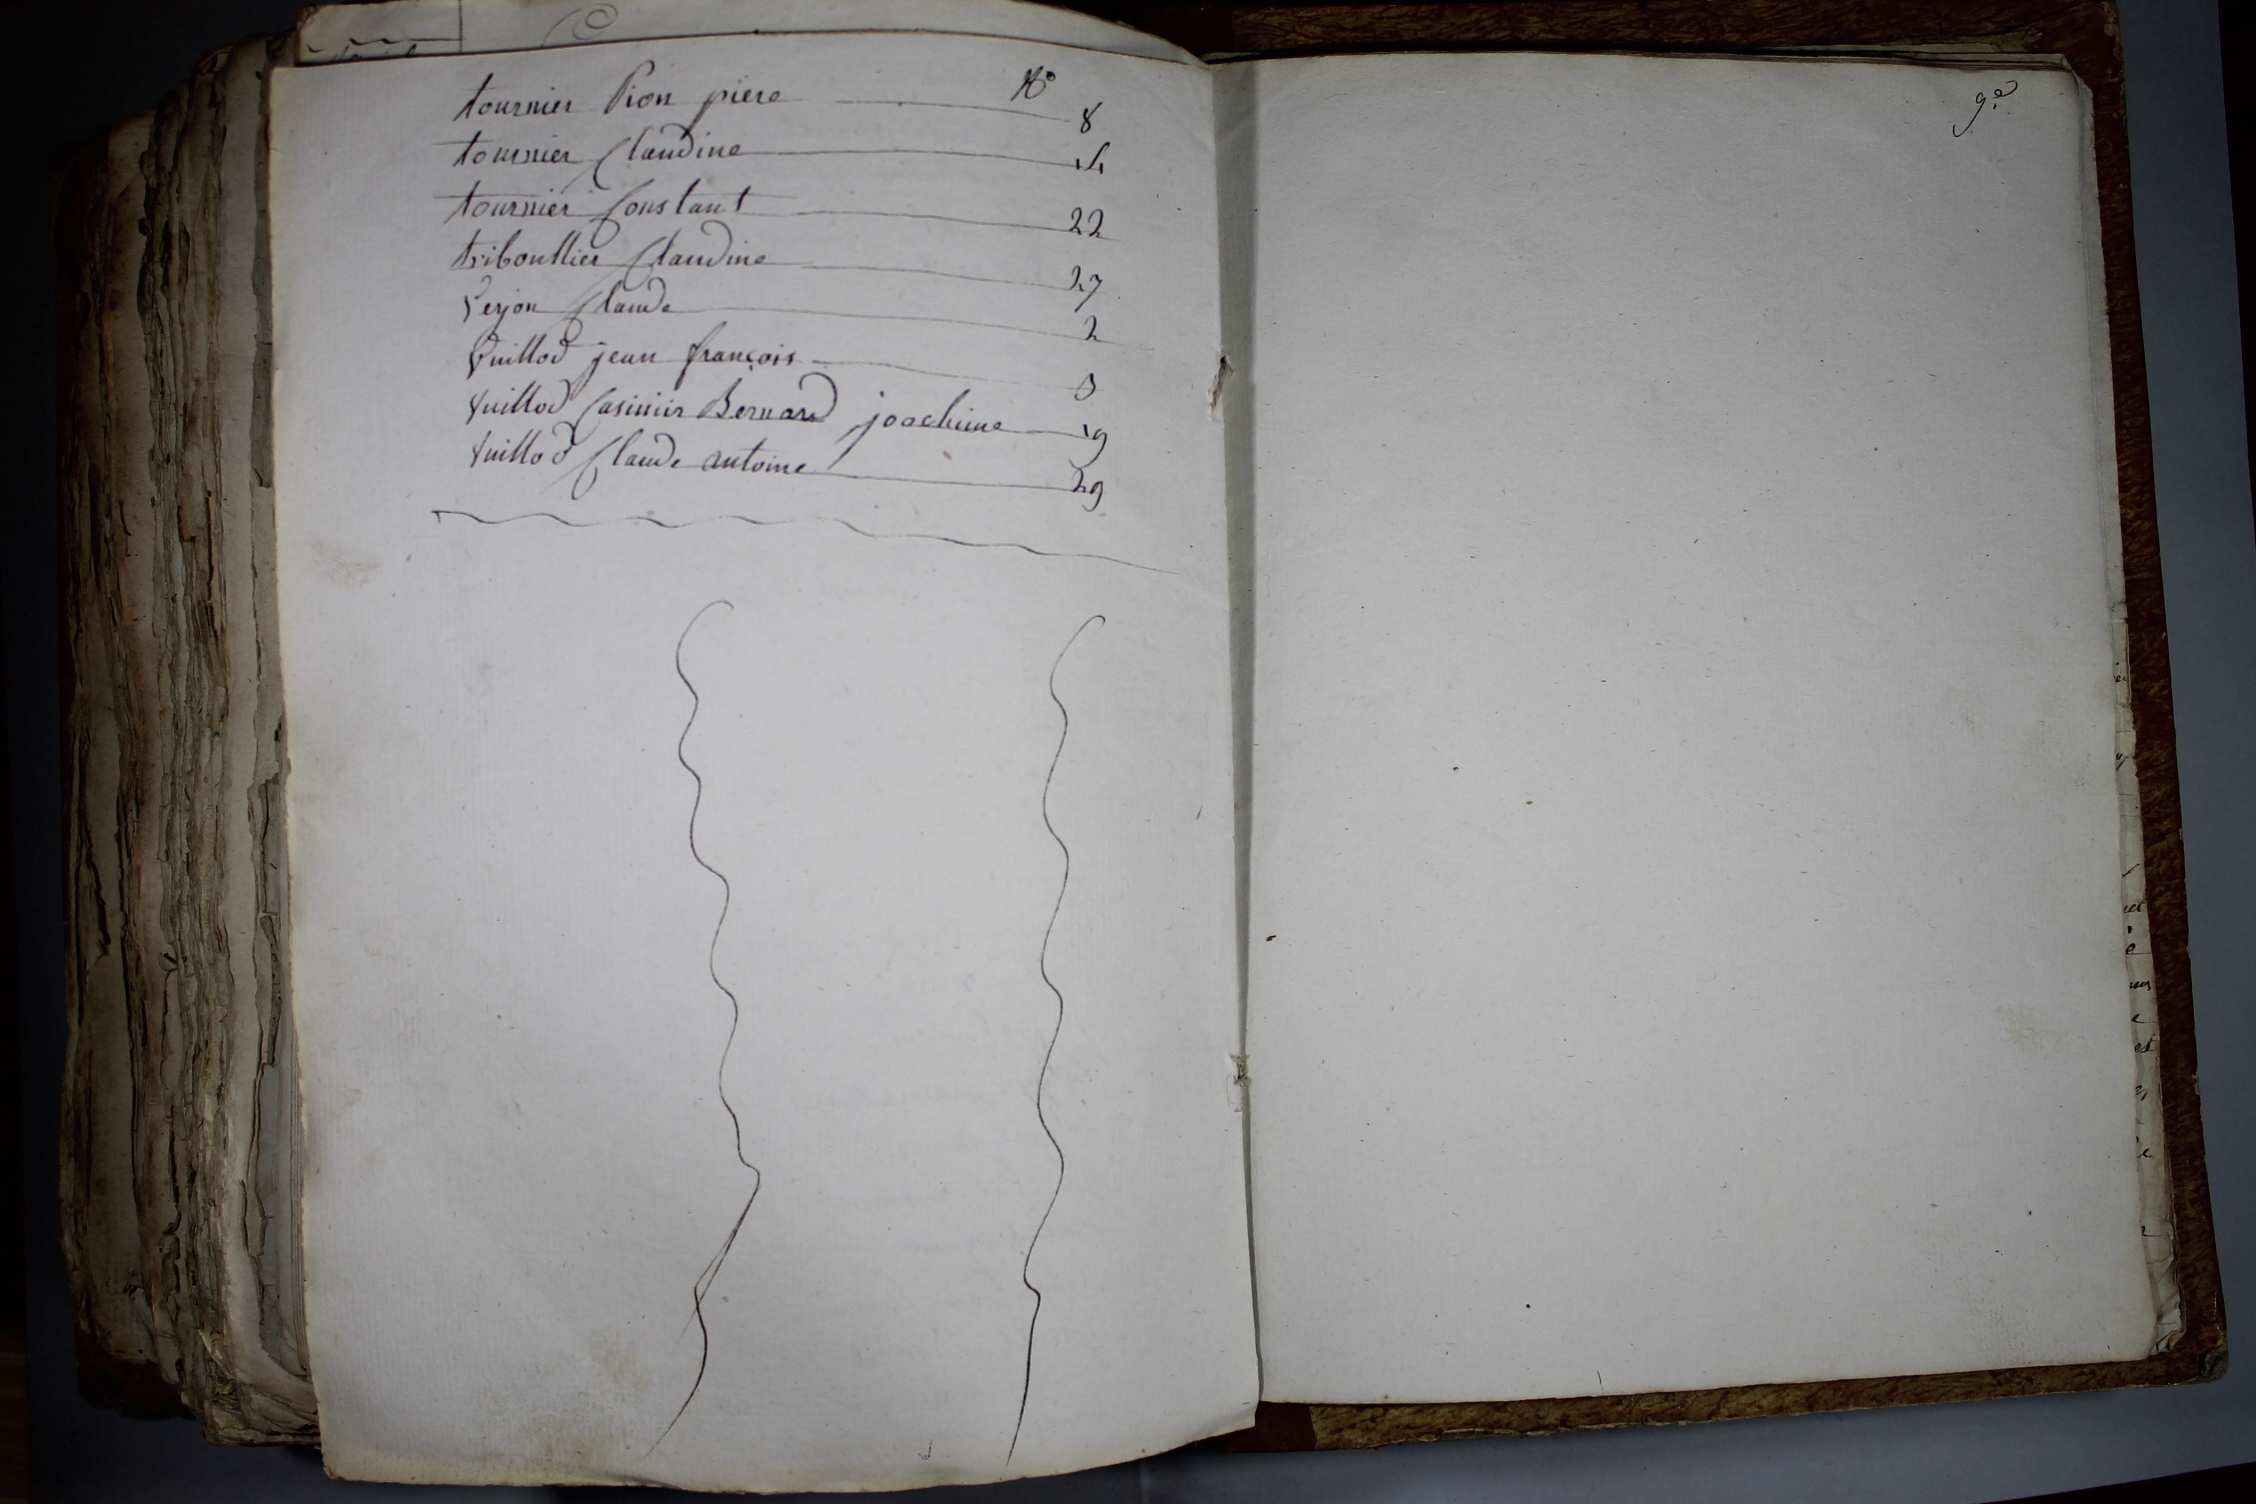 N°
tournier Pion piere 8
tournier Claudine 14
tournier Constant 22
triboullier Claudine 27
Verjon Claude 2
Vuillod jean françois 3
Vuillod Casimir Bernard joachime 19
Vuillod Claude antoine 29
9e